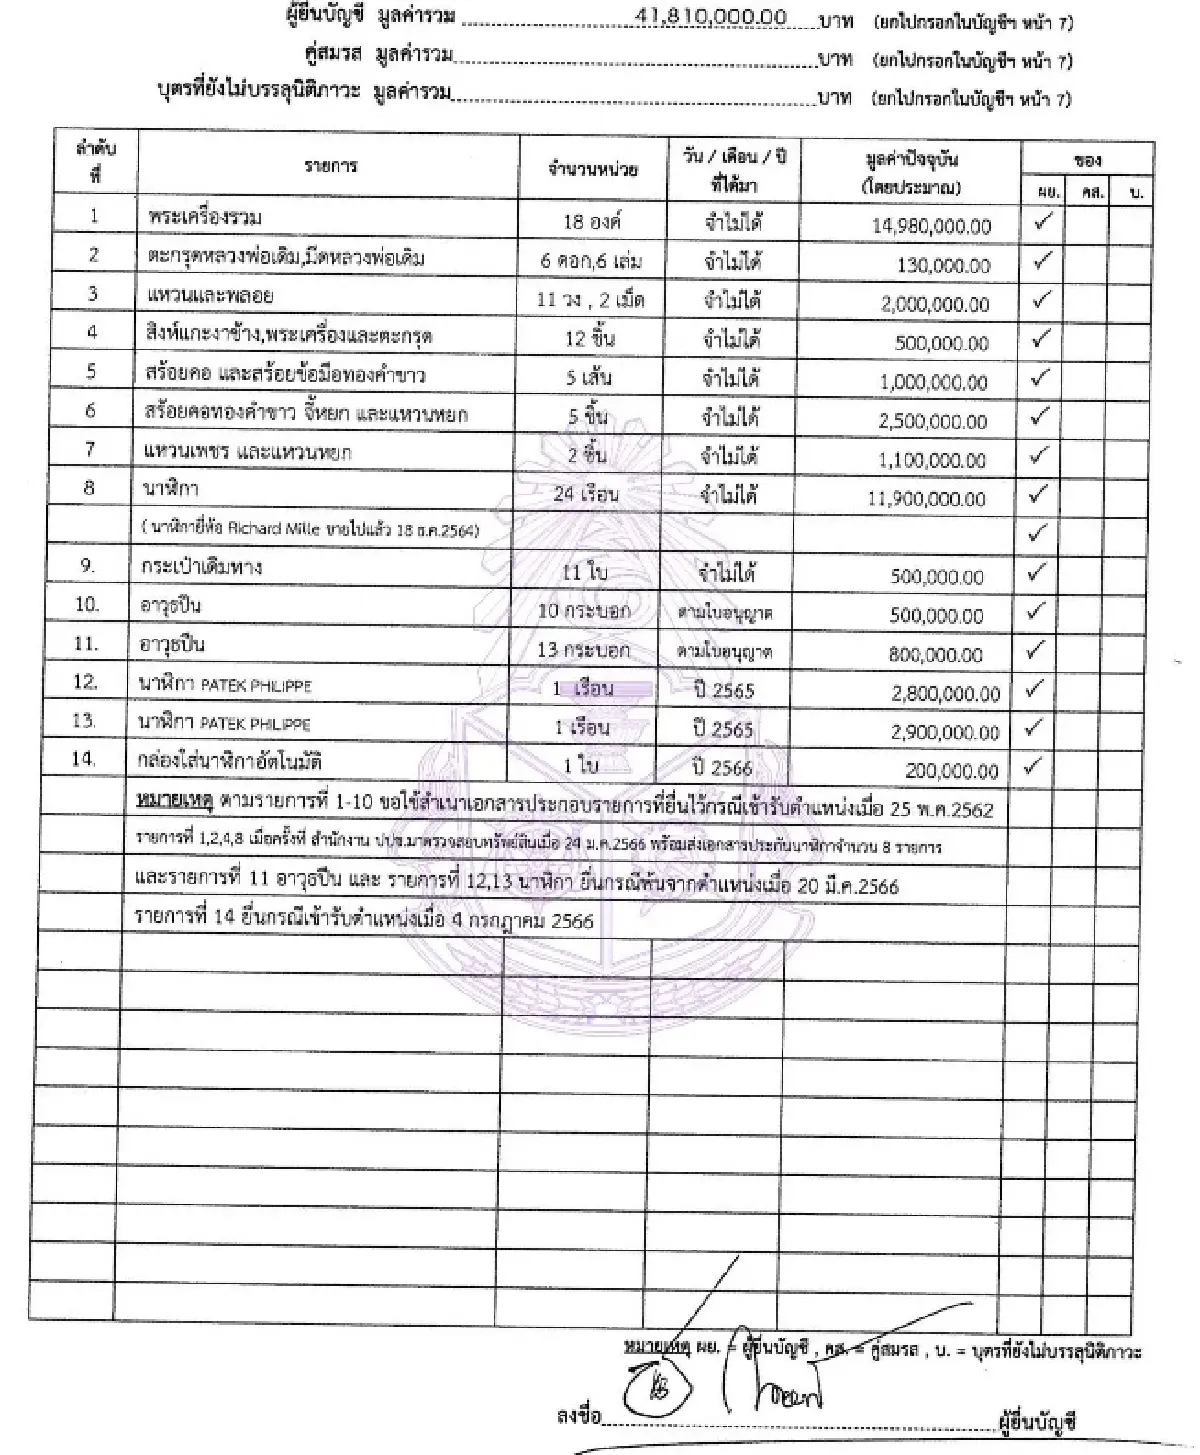 ผู้ยื่นบัญชี มูลค่ารวม 41,810,000.00 บาท (ยกไปกรอกในบัญชีฯ หน้า 7)
คู่สมรส มูลค่ารวม บาท (ยกไปกรอกในบัญชีฯ หน้า 7)
บุตรที่ยังไม่บรรลุนิติภาวะ มูลค่ารวม บาท (ยกไปกรอกในบัญชีฯ หน้า 7)
ลำดับที่ รายการ จำนวนหน่วย วัน / เดือน / ปี ที่ได้มา มูลค่าปัจจุบัน (โดยประมาณ) ของ
ผย. คส. บ.
1 พระเครื่องรวม 18 องค์ จำไม่ได้ 14,980,000.00 ✓
2 ตะกรุดหลวงพ่อเดิม,มีดหลวงพ่อเดิม 6 ดอก,6 เล่ม จำไม่ได้ 130,000.00 ✓
3 แหวนและพลอย 11 วง , 2 เม็ด จำไม่ได้ 2,000,000.00 ✓
4 สิงห์แกะงาช้าง,พระเครื่องและตะกรุด 12 ชิ้น จำไม่ได้ 500,000.00 ✓
5 สร้อยคอ และสร้อยข้อมือทองคำขาว 5 เส้น จำไม่ได้ 1,000,000.00 ✓
6 สร้อยคอทองคำขาว จี้หยก และแหวนหยก 5 ชิ้น จำไม่ได้ 2,500,000.00 ✓
7 แหวนเพชร และแหวนหยก 2 ชิ้น จำไม่ได้ 1,100,000.00 ✓
8 นาฬิกา 24 เรือน จำไม่ได้ 11,900,000.00 ✓
( นาฬิกายี่ห้อ Richard Mille ขายไปแล้ว 18 ธ.ค.2564) ✓
9. กระเป๋าเดินทาง 11 ใบ จำไม่ได้ 500,000.00 ✓
10. อาวุธปืน 10 กระบอก ตามใบอนุญาต 500,000.00 ✓
11. อาวุธปืน 13 กระบอก ตามใบอนุญาต 800,000.00 ✓
12. นาฬิกา PATEK PHILIPPE 1 เรือน ปี 2565 2,800,000.00 ✓
13. นาฬิกา PATEK PHILIPPE 1 เรือน ปี 2565 2,900,000.00 ✓
14. กล่องใส่นาฬิกาอัตโนมัติ 1 ใบ ปี 2566 200,000.00 ✓
หมายเหตุ ตามรายการที่ 1-10 ขอใช้สำเนาเอกสารประกอบรายการที่ยื่นไว้กรณีเข้ารับตำแหน่งเมื่อ 25 พ.ค.2562
รายการที่ 1,2,4,8 เมื่อครั้งที่ สำนักงาน ปปช.มาตรวจสอบทรัพย์สินเมื่อ 24 ม.ค.2566 พร้อมส่งเอกสารประกันนาฬิกาจำนวน 8 รายการ
และรายการที่ 11 อาวุธปืน และ รายการที่ 12,13 นาฬิกา ยื่นกรณีพ้นจากตำแหน่งเมื่อ 20 มี.ค.2566
รายการที่ 14 ยื่นกรณีเข้ารับตำแหน่งเมื่อ 4 กรกฎาคม 2566
หมายเหตุ ผย. = ผู้ยื่นบัญชี , คส. = คู่สมรส , บ. = บุตรที่ยังไม่บรรลุนิติภาวะ
ลงชื่อ ผู้ยื่นบัญชี